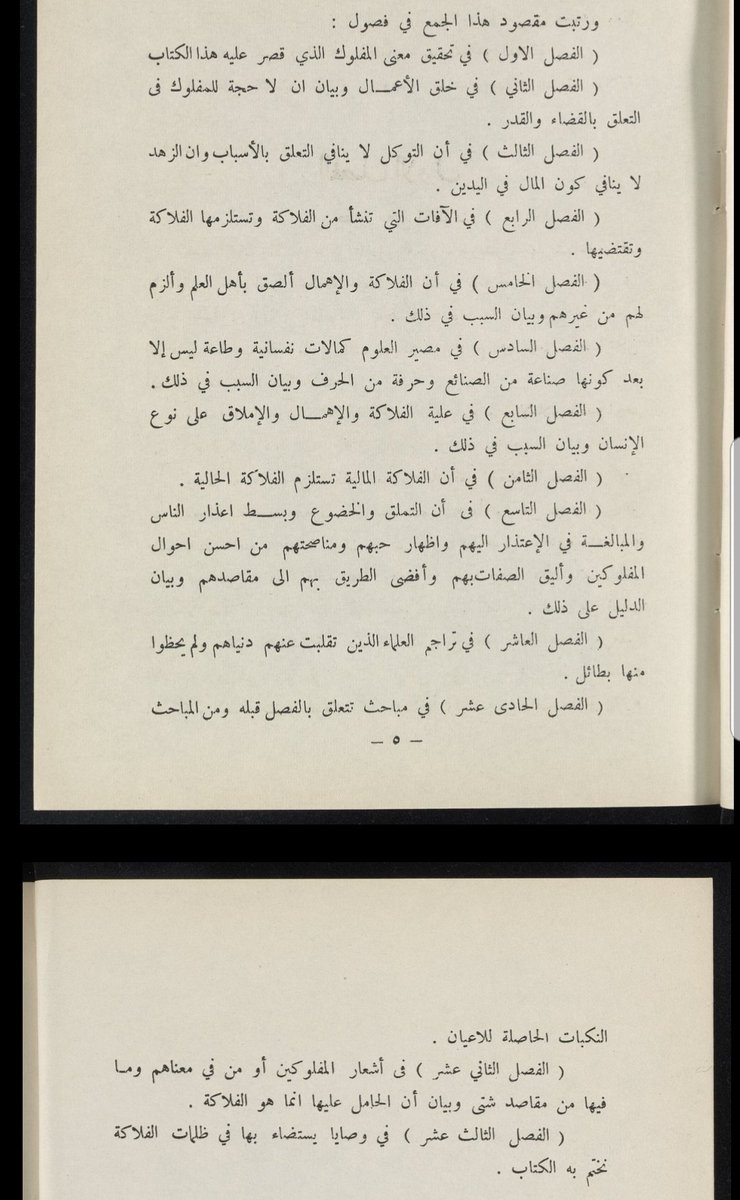 ورتبت مقصود هذا الجمع في فصول :
( الفصل الاول ) في تحقيق معنى المفلوك الذي قصر عليه هذا الكتاب
( الفصل الثاني ) في خلق الأعمــال وبيان ان لا حجة للمفلوك فى
التعلق بالقضاء والقدر .
( الفصل الثالث ) في أن التوكل لا ينافي التعلق بالأسباب وان الزهد
لا ينافي كون المال في اليدين .
( الفصل الرابع ) في الآفات التي تنشأ من الفلاكة وتستلزمها الفلاكة
وتقتضيها .
( الفصل الخامس ) في أن الفلاكة والإهمال ألصق بأهل العلم وألزم
لهم من غيرهم وبيان السبب في ذلك .
( الفصل السادس ) في مصير العلوم كمالات نفسانية وطاعة ليس إلا
بعد كونها صناعة من الصنائع وحرفة من الحرف وبيان السبب في ذلك .
( الفصل السابع ) في علية الفلاكة والإهمــال والإملاق على نوع
الإنسان وبيان السبب في ذلك .
( الفصل الثامن ) في أن الفلاكة المالية تستلزم الفلاكة الحالية .
( الفصل التاسع ) فى أن التملق والخضوع وبســط اعذار الناس
والمبالغــة في الإعتذار اليهم واظهار حبهم ومناصحتهم من احسن احوال
المفلوكين وأليق الصفات بهم وأفضى الطريق بهم الى مقاصدهم وبيان
الدليل على ذلك .
( الفصل العاشر ) في تراجم العلماء الذين تقلبت عنهم دنياهم ولم يحظوا
منها بطائل .
( الفصل الحادى عشر ) في مباحث تتعلق بالفصل قبله ومن المباحث
— ٥ —
النكبات الحاصلة للاعيان .
( الفصل الثاني عشر ) فى أشعار المفلوكين أو من في معناهم ومـا
فيها من مقاصد شتى وبيان أن الحامل عليها انما هو الفلاكة .
( الفصل الثالث عشر ) في وصايا يستضاء بها في ظلمات الفلاكة
نختم به الكتاب .